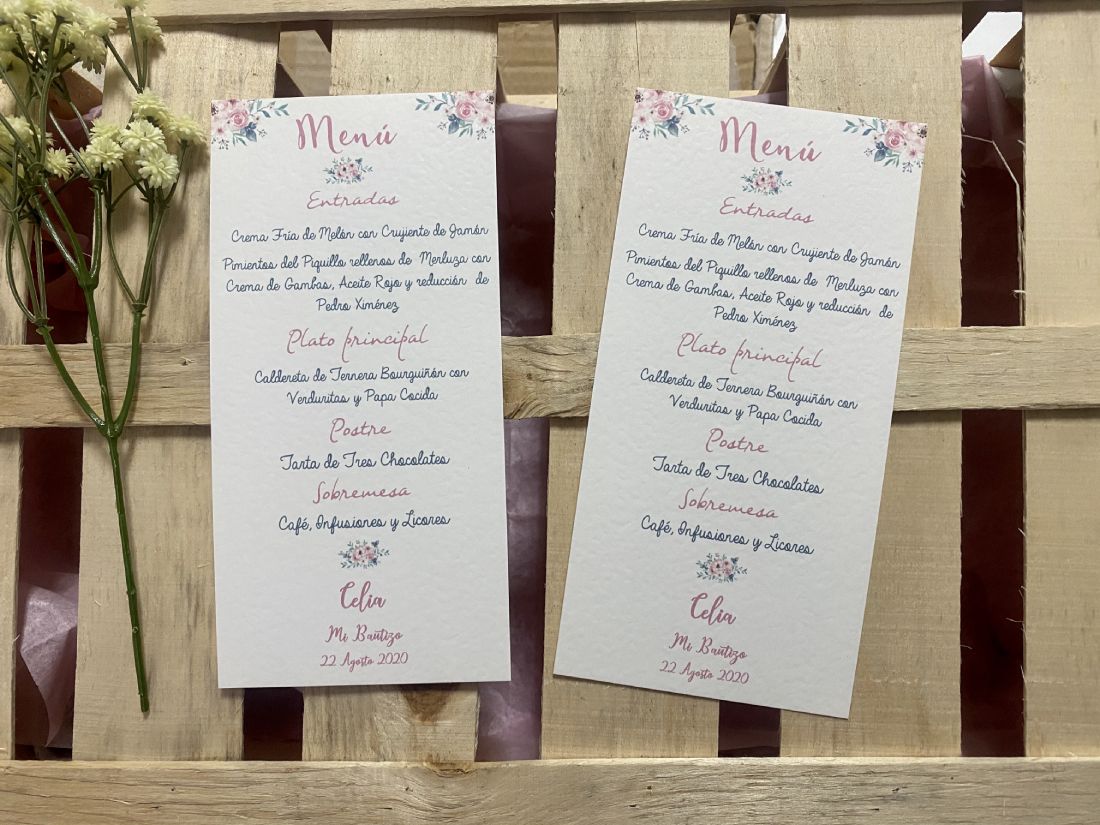 Menú
Entradas
Crema Fría de Melón con Crujiente de Jamón
Pimientos del Piquillo rellenos de Merluza con
Crema de Gambas, Aceite Rojo y reducción de
Pedro Ximénez
Plato principal
Caldereta de Ternera Bourguiñón con
Verduritas y Papa Cocida
Postre
Tarta de Tres Chocolates
Sobremesa
Café, Infusiones y Licores
Celia
Mi Bautizo
22 Agosto 2020
Menú
Entradas
Crema Fría de Melón con Crujiente de Jamón
Pimientos del Piquillo rellenos de Merluza con
Crema de Gambas, Aceite Rojo y reducción de
Pedro Ximénez
Plato principal
Caldereta de Ternera Bourguiñón con
Verduritas y Papa Cocida
Postre
Tarta de Tres Chocolates
Sobremesa
Café, Infusiones y Licores
Celia
Mi Bautizo
22 Agosto 2020